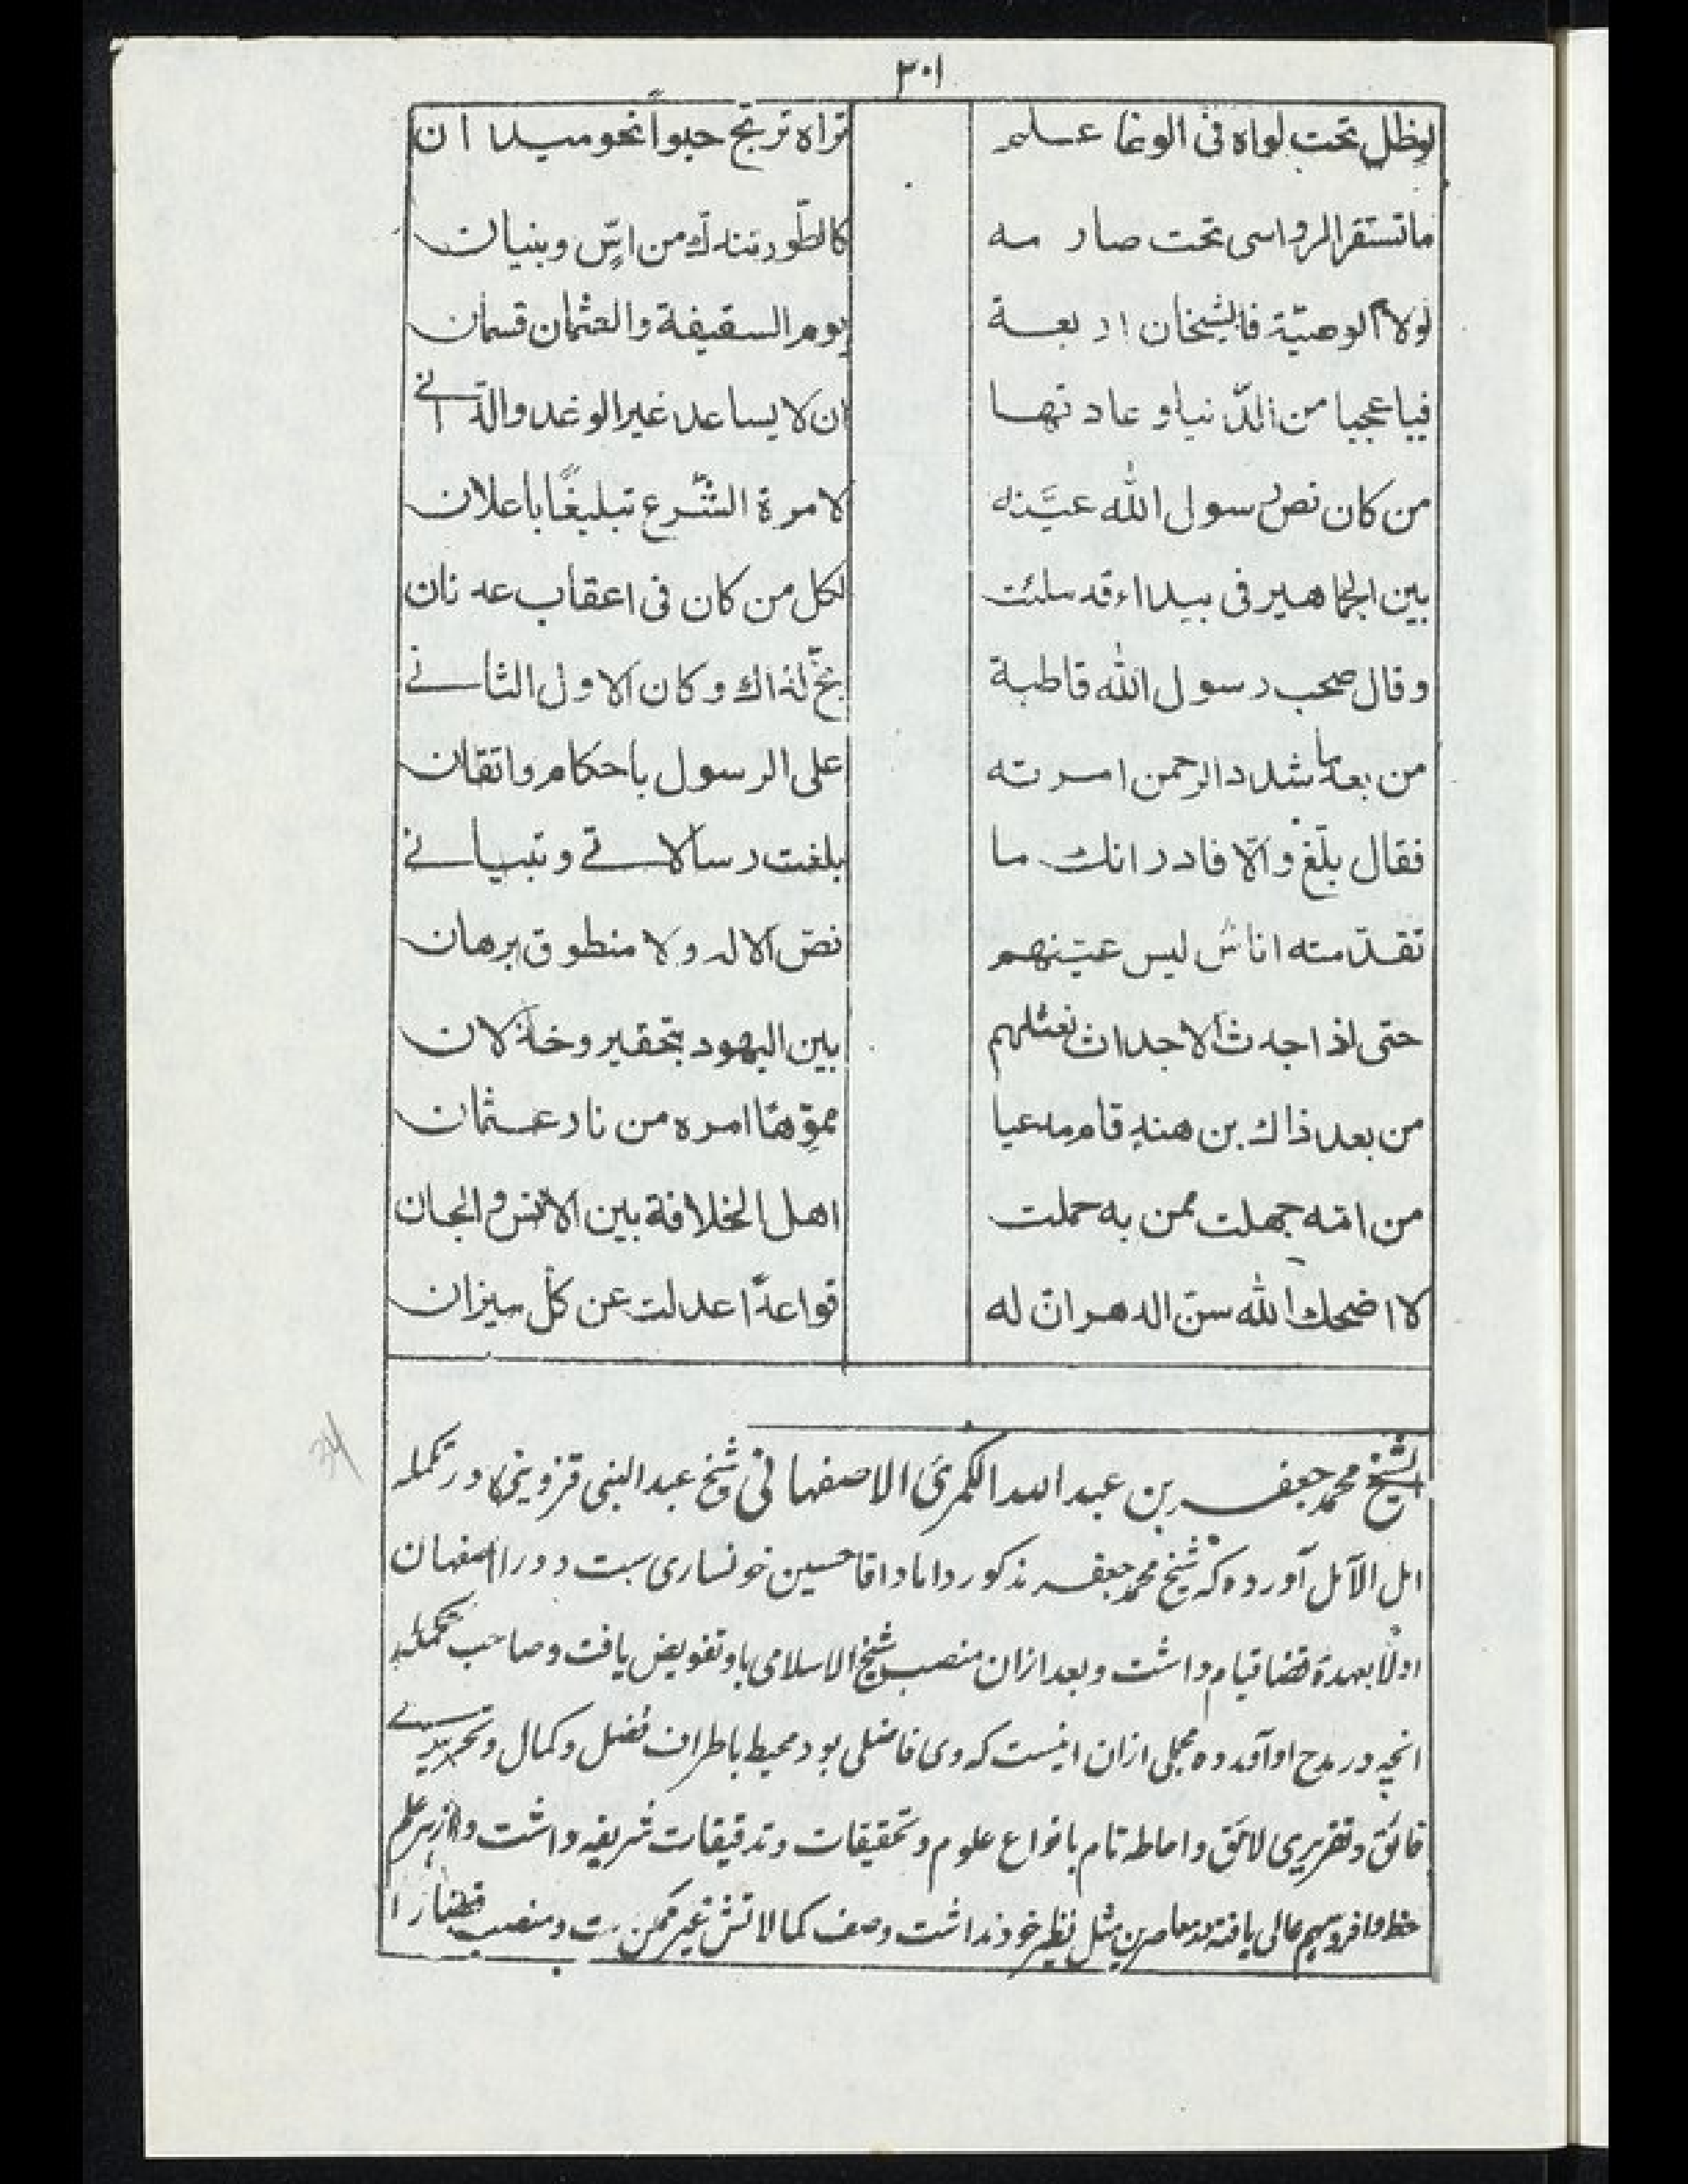 ٣٠١
لوظل تحت لواه فى الوغا علم تراه ترتج حبواً نحو ميدان
ماتستقر الرواسى تحت صارمه كالطّور تندكّ من اسّ وبنيان
لولا الوصيّة فالشيخان اربعة يوم السقيفة والعثمان قسمان
فياعجبا من الدّنيا وعادتها ان لا يساعد غير الوغد والدّانے
من كان نص رسول اللّٰه عيَّنه لامرة الشّرع تبليغًا باعلان
بين الجماهير فى بيداء قد ملئت لكل من كان فى اعقاب عدنان
وقال صحب رسول اللّٰه قاطبة بخّ لذاك وكان الاول الثانے
من بعد ما شدد الرحمن امرته على الرسول باحكام واتقان
فقال بلّغ والّا فادر انك ما بلغت رسالاتے وتبيانے
تقدّمته اناسٌ ليس عيّنهم نصّ الاله ولا منطوق برهان
حتى اذا اجدث الاجداث نعثلهم بين اليهود بتحقير وخذلان
من بعد ذاك بن هندٍ قام مدعيا مموّهًا امره من نار عثمان
من امّه جهلت ممن به حملت اهل الخلافة بين الانس والجان
لا اضحك اللّٰه سنّ الدهر ان له قواعدًا عدلت عن كلّ ميزان
الشيخ محمد جعفر بن عبد اللہ الكمرئ الاصفهانى شيخ عبد النبى قزوينى در تكملہ
امل الآمل آورده كہ شيخ محمد جعفر مذكور داماد اقا حسين خونسارى ست و در اصفهان
اولًا بعهدۂ قضا قيام داشت و بعد ازان منصب شيخ الاسلامى باو تفويض يافت و صاحب تكملہ
انچہ در مدح او آورده مجملى ازان اينست كہ وى فاضلى بود محيط باطراف فضل و كمال و تحريرے
فائق و تقريرى لائق و احاطہ تام بانواع علوم و تحقيقات و تدقيقات شريفہ داشت و از هر علم
حظ وافر و سهم عالى يافتہ در معاصرين مثل نظير خود نداشت وصف كمالاتش غير ممكن ست و منصب قضا را